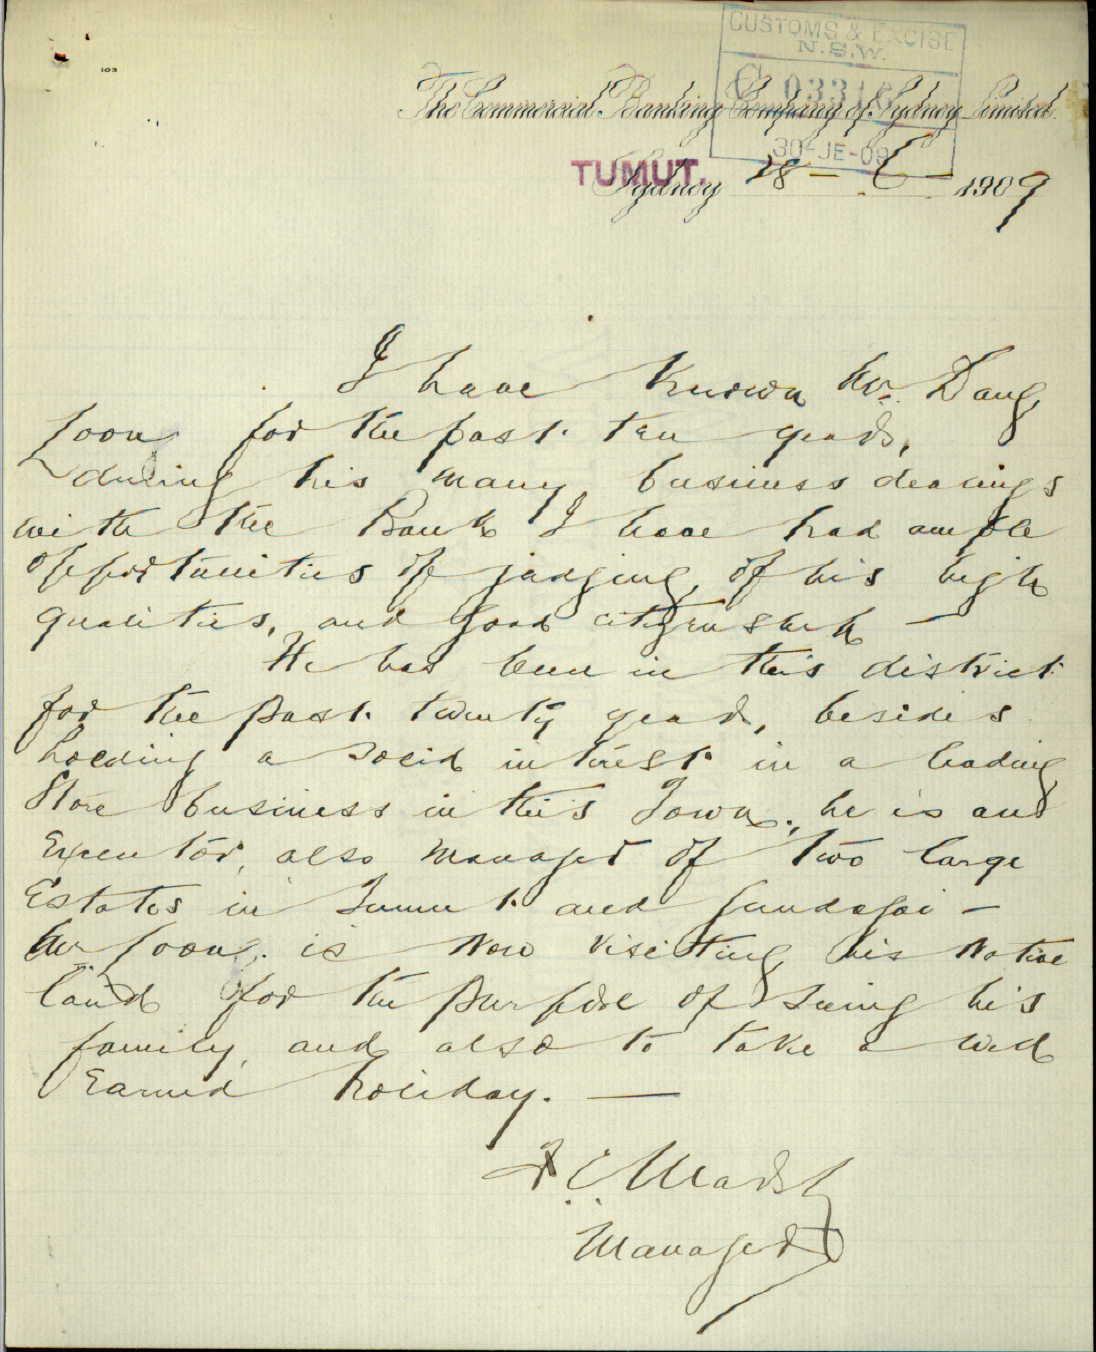 103
CUSTOMS & EXCISE
N.S.W.
C 03316
30-JE-09
The Commercial Banking Company of Sydney Limited.
TUMUT.
Sydney 28 - 6 - 1909
I have known Mr. Dang
Loon for the past ten years,
during his many business dealings
with the Bank I have had ample
opportunities of judging of his high
qualities, and good citizenship —
He has been in this district
for the past twenty years, besides
holding a solid interest in a leading
Store business in this Town, he is and
Executor, also manager of two large
Estates in Tumut and Gundagai —
Mr Loon is now visiting his native
land for the purpose of seeing his
family, and also to take a well
Earned holiday. —
C Marsh
Manager